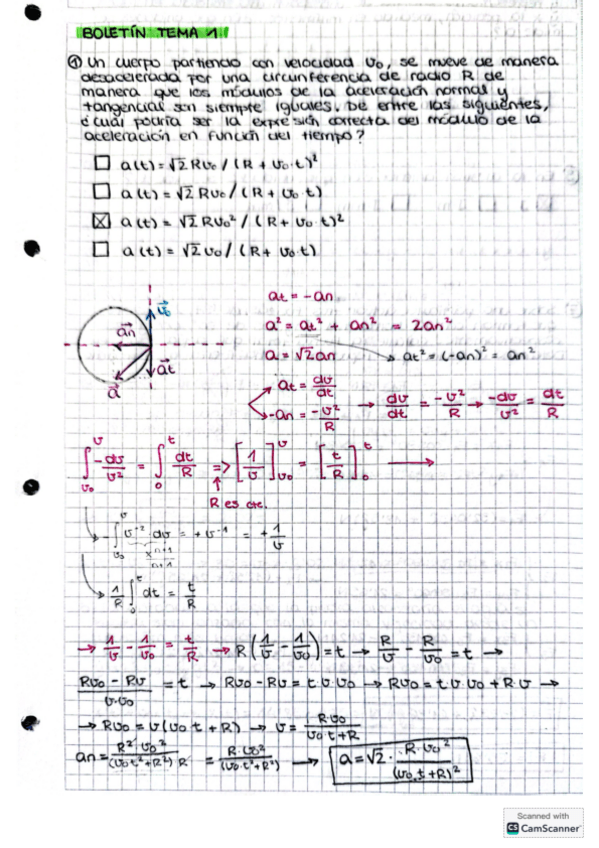 BOLETÍN TEMA 1
① Un cuerpo partiendo con velocidad v₀, se mueve de manera
desacelerada por una circunferencia de radio R de
manera que los módulos de la aceleración normal y
tangencial son siempre iguales. De entre las siguientes,
¿cuál podría ser la expresión correcta del módulo de la
aceleración en función del tiempo?
☐ a(t) = √2 Rv₀ / (R + v₀·t)²
☐ a(t) = √2 Rv₀ / (R + v₀·t)
☒ a(t) = √2 Rv₀² / (R + v₀·t)²
☐ a(t) = √2 v₀ / (R + v₀·t)
at = -an
v₀
an
at
a
a² = at² + an² = 2an²
a = √2 an
at² = (-an)² = an²
at = dv/dt
-an = -v²/R → dv/dt = -v²/R → -dv/v² = dt/R
∫_{v₀}^{v} -dv/v² = ∫_{0}^{t} dt/R => [1/v]_{v₀}^{v} = [t/R]_{0}^{t} →
R es cte.
-∫_{v₀}^{v} v⁻² · dv = + v⁻¹ = + 1/v
xⁿ⁺¹/n+1
1/R ∫_{0}^{t} dt = t/R
→ 1/v - 1/v₀ = t/R → R(1/v - 1/v₀) = t → R/v - R/v₀ = t →
Rv₀ - Rv / v·v₀ = t → Rv₀ - Rv = t v·v₀ → Rv₀ = t v v₀ + R v →
→ Rv₀ = v(v₀ t + R) → v = R·v₀ / v₀ t + R
an = R² v₀² / (v₀ t² + R²) R = R·v₀² / (v₀·t² + R²) → a = √2 · R·v₀² / (v₀·t + R)²
Scanned with
CS CamScanner